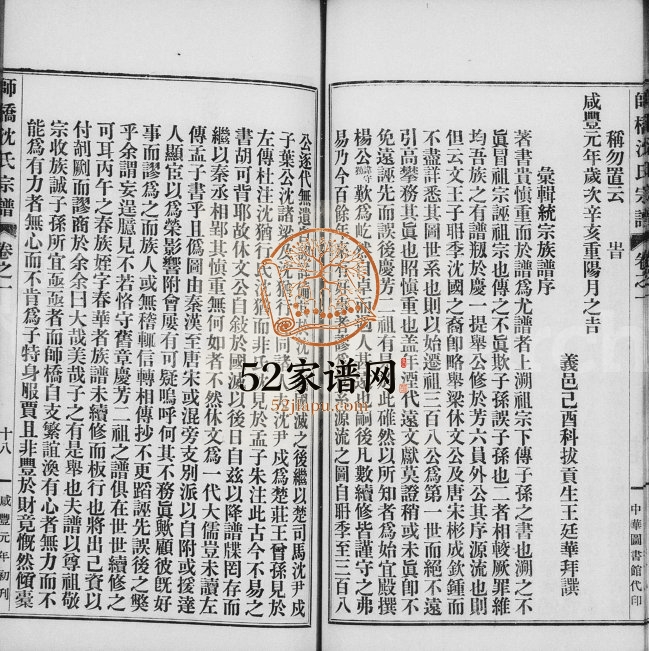 稱勿置云 旹
咸豐元年歲次辛亥重陽月之吉
義邑己酉科拔貢生王廷華拜譔
彙輯統宗族譜序
著書貴慎重而於譜爲尤譜者上溯祖宗下傳子孫之書也溯之不
眞冒祖宗誣祖宗也傳之不眞欺子孫誤子孫也二者相較厥罪維
均吾族之有譜剏於慶一提舉公修於芳六員外公其序源流也則
但云文王子聃季沈國之裔卽略舉梁休文公及唐宋彬成欽鍾而
不盡詳悉其圖世系也則以始遷祖三百八公爲第一世而絕不遠
引高攀務其眞也昭慎重也蓋年湮代遠文獻莫證稍或未眞卽不
免誣先而誤後慶芳二祖有見於此確然以所知者爲始宜殿撰
楊公歎爲屹然卓過人其後嗣後凡數續修皆謹守之弗
易乃今百餘年來有好事者謬爲系源流之圖自聃季至三百八
師橋沈氏宗譜 卷之一
中華圖書館代印
公逐代無遺沈滅之後繼以楚司馬沈尹戍
子葉公沈諸梁沈猶行同諸沈尹戍爲楚莊王曾孫見於
左傳杜注沈猶行氏沈猶而非氏沈見於孟子朱注此古今不易之
書胡可背耶故休文公自敍於國滅以後日自茲以降譜牒罔存而
繼以秦丞相郢其慎重無何如者不然休文爲一代大儒豈未讀左
傳孟子書乎且僞圖由秦漢至唐宋或混旁支別派以自附或援達
人顯宦以爲榮影響附會屢有可疑嗚呼何其不務眞歟顧彼旣好
事而謬爲之而族人或無稽輒信轉相傳抄不更蹈誣先誤後之獘
乎余謂妄逞臆見不若恪守舊章慶芳二祖之譜俱在世世續修之
可耳丙午之春族姪字春華者族譜未續修而板行也將出己資以
付剞劂而謬商於余余曰大哉美哉子之有是舉也夫譜以尊祖敬
宗收族誠子孫所宜亟亟者而師橋自支繁誼渙有心者無力而不
能爲有力者無心而不肯爲子特身服賈且非豐於財竟慨然傾橐
師橋沈氏宗譜 卷之一
十八 咸豐元年初刊
52家谱网
52jiapu.com